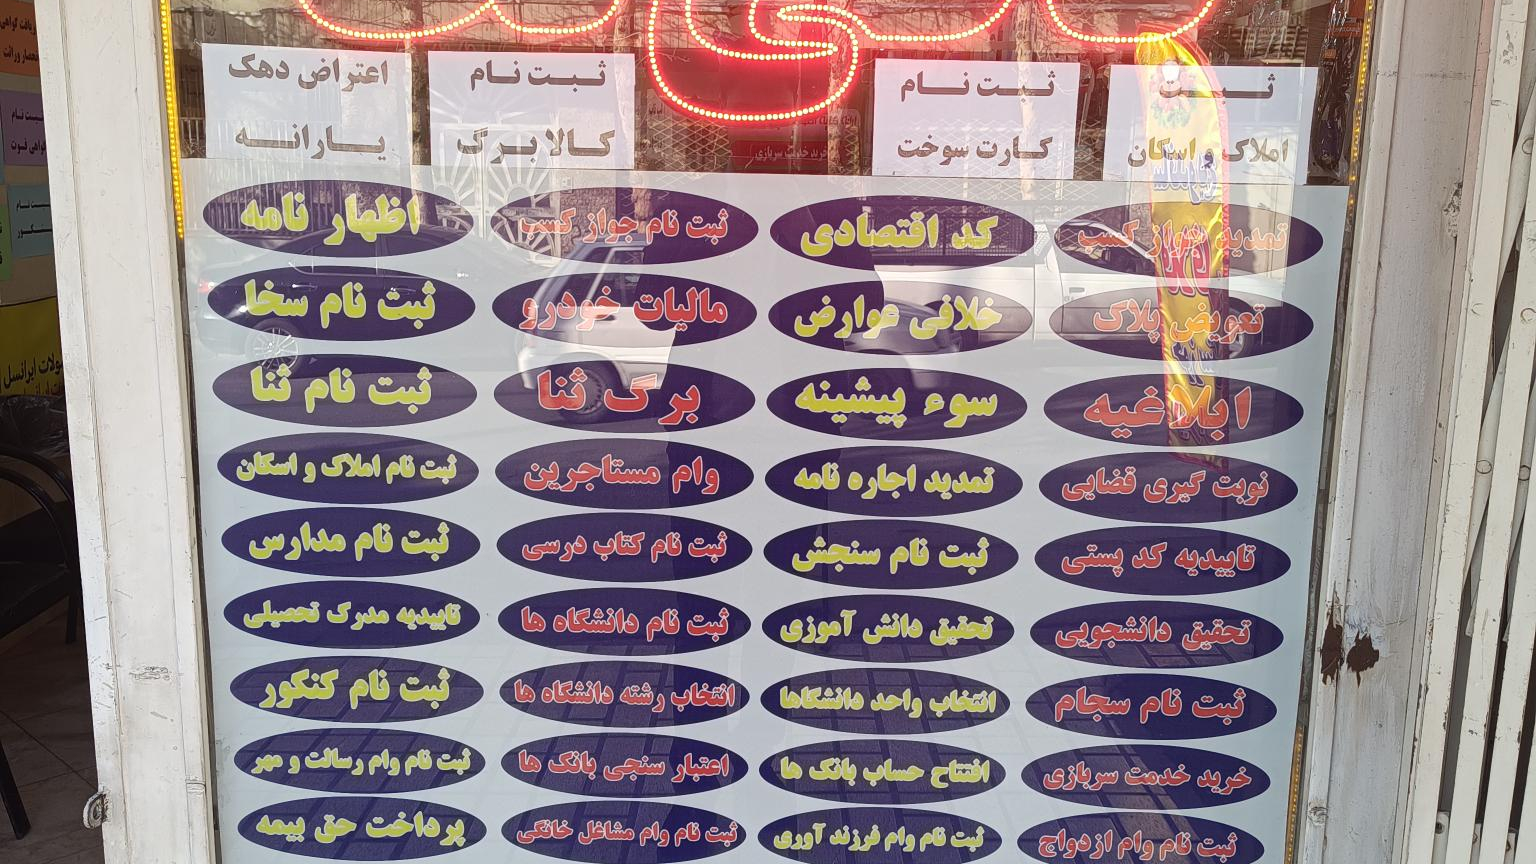 ثبت
املاک و اسکان
ثبت نام
کارت سوخت
ثبت نام
کالابرگ
اعتراض دهک
یارانه
خرید خدمت سربازی
تمدید جواز کسب
کد اقتصادی
ثبت نام جواز کسب
اظهار نامه
تعویض پلاک
خلافی عوارض
مالیات خودرو
ثبت نام سخا
ابلاغیه
سوء پیشینه
برگ ثنا
ثبت نام ثنا
نوبت گیری قضایی
تمدید اجاره نامه
وام مستاجرین
ثبت نام املاک و اسکان
تاییدیه کد پستی
ثبت نام سنجش
ثبت نام کتاب درسی
ثبت نام مدارس
تحقیق دانشجویی
تحقیق دانش آموزی
ثبت نام دانشگاه ها
تاییدیه مدرک تحصیلی
ثبت نام سجام
انتخاب واحد دانشگاها
انتخاب رشته دانشگاه ها
ثبت نام کنکور
خرید خدمت سربازی
افتتاح حساب بانک ها
اعتبار سنجی بانک ها
ثبت نام وام رسالت و مهر
ثبت نام وام ازدواج
ثبت نام وام فرزند آوری
ثبت نام وام مشاغل خانگی
پرداخت حق بیمه